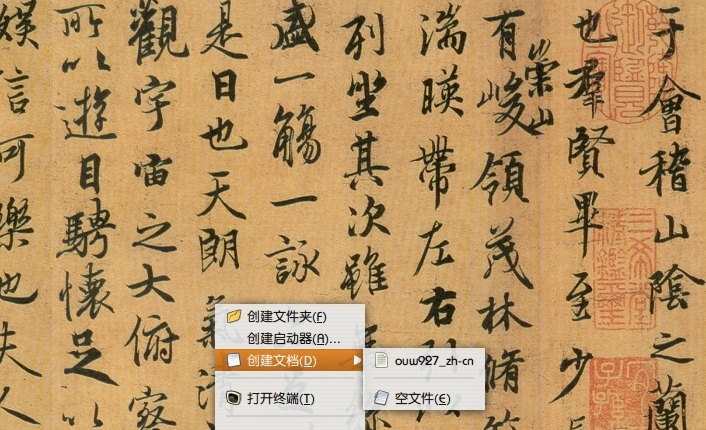 于會稽山陰之蘭
也羣賢畢至少
有崇山峻領茂林脩
湍暎帶左右
列坐其次雖
盛一觴一詠
是日也天朗氣清
觀宇宙之大俯察
所以遊目騁懷足以
娛信可樂也夫人
创建文件夹(F)
创建启动器(A)...
创建文档(D)
打开终端(T)
ouw927_zh-cn
空文件(E)